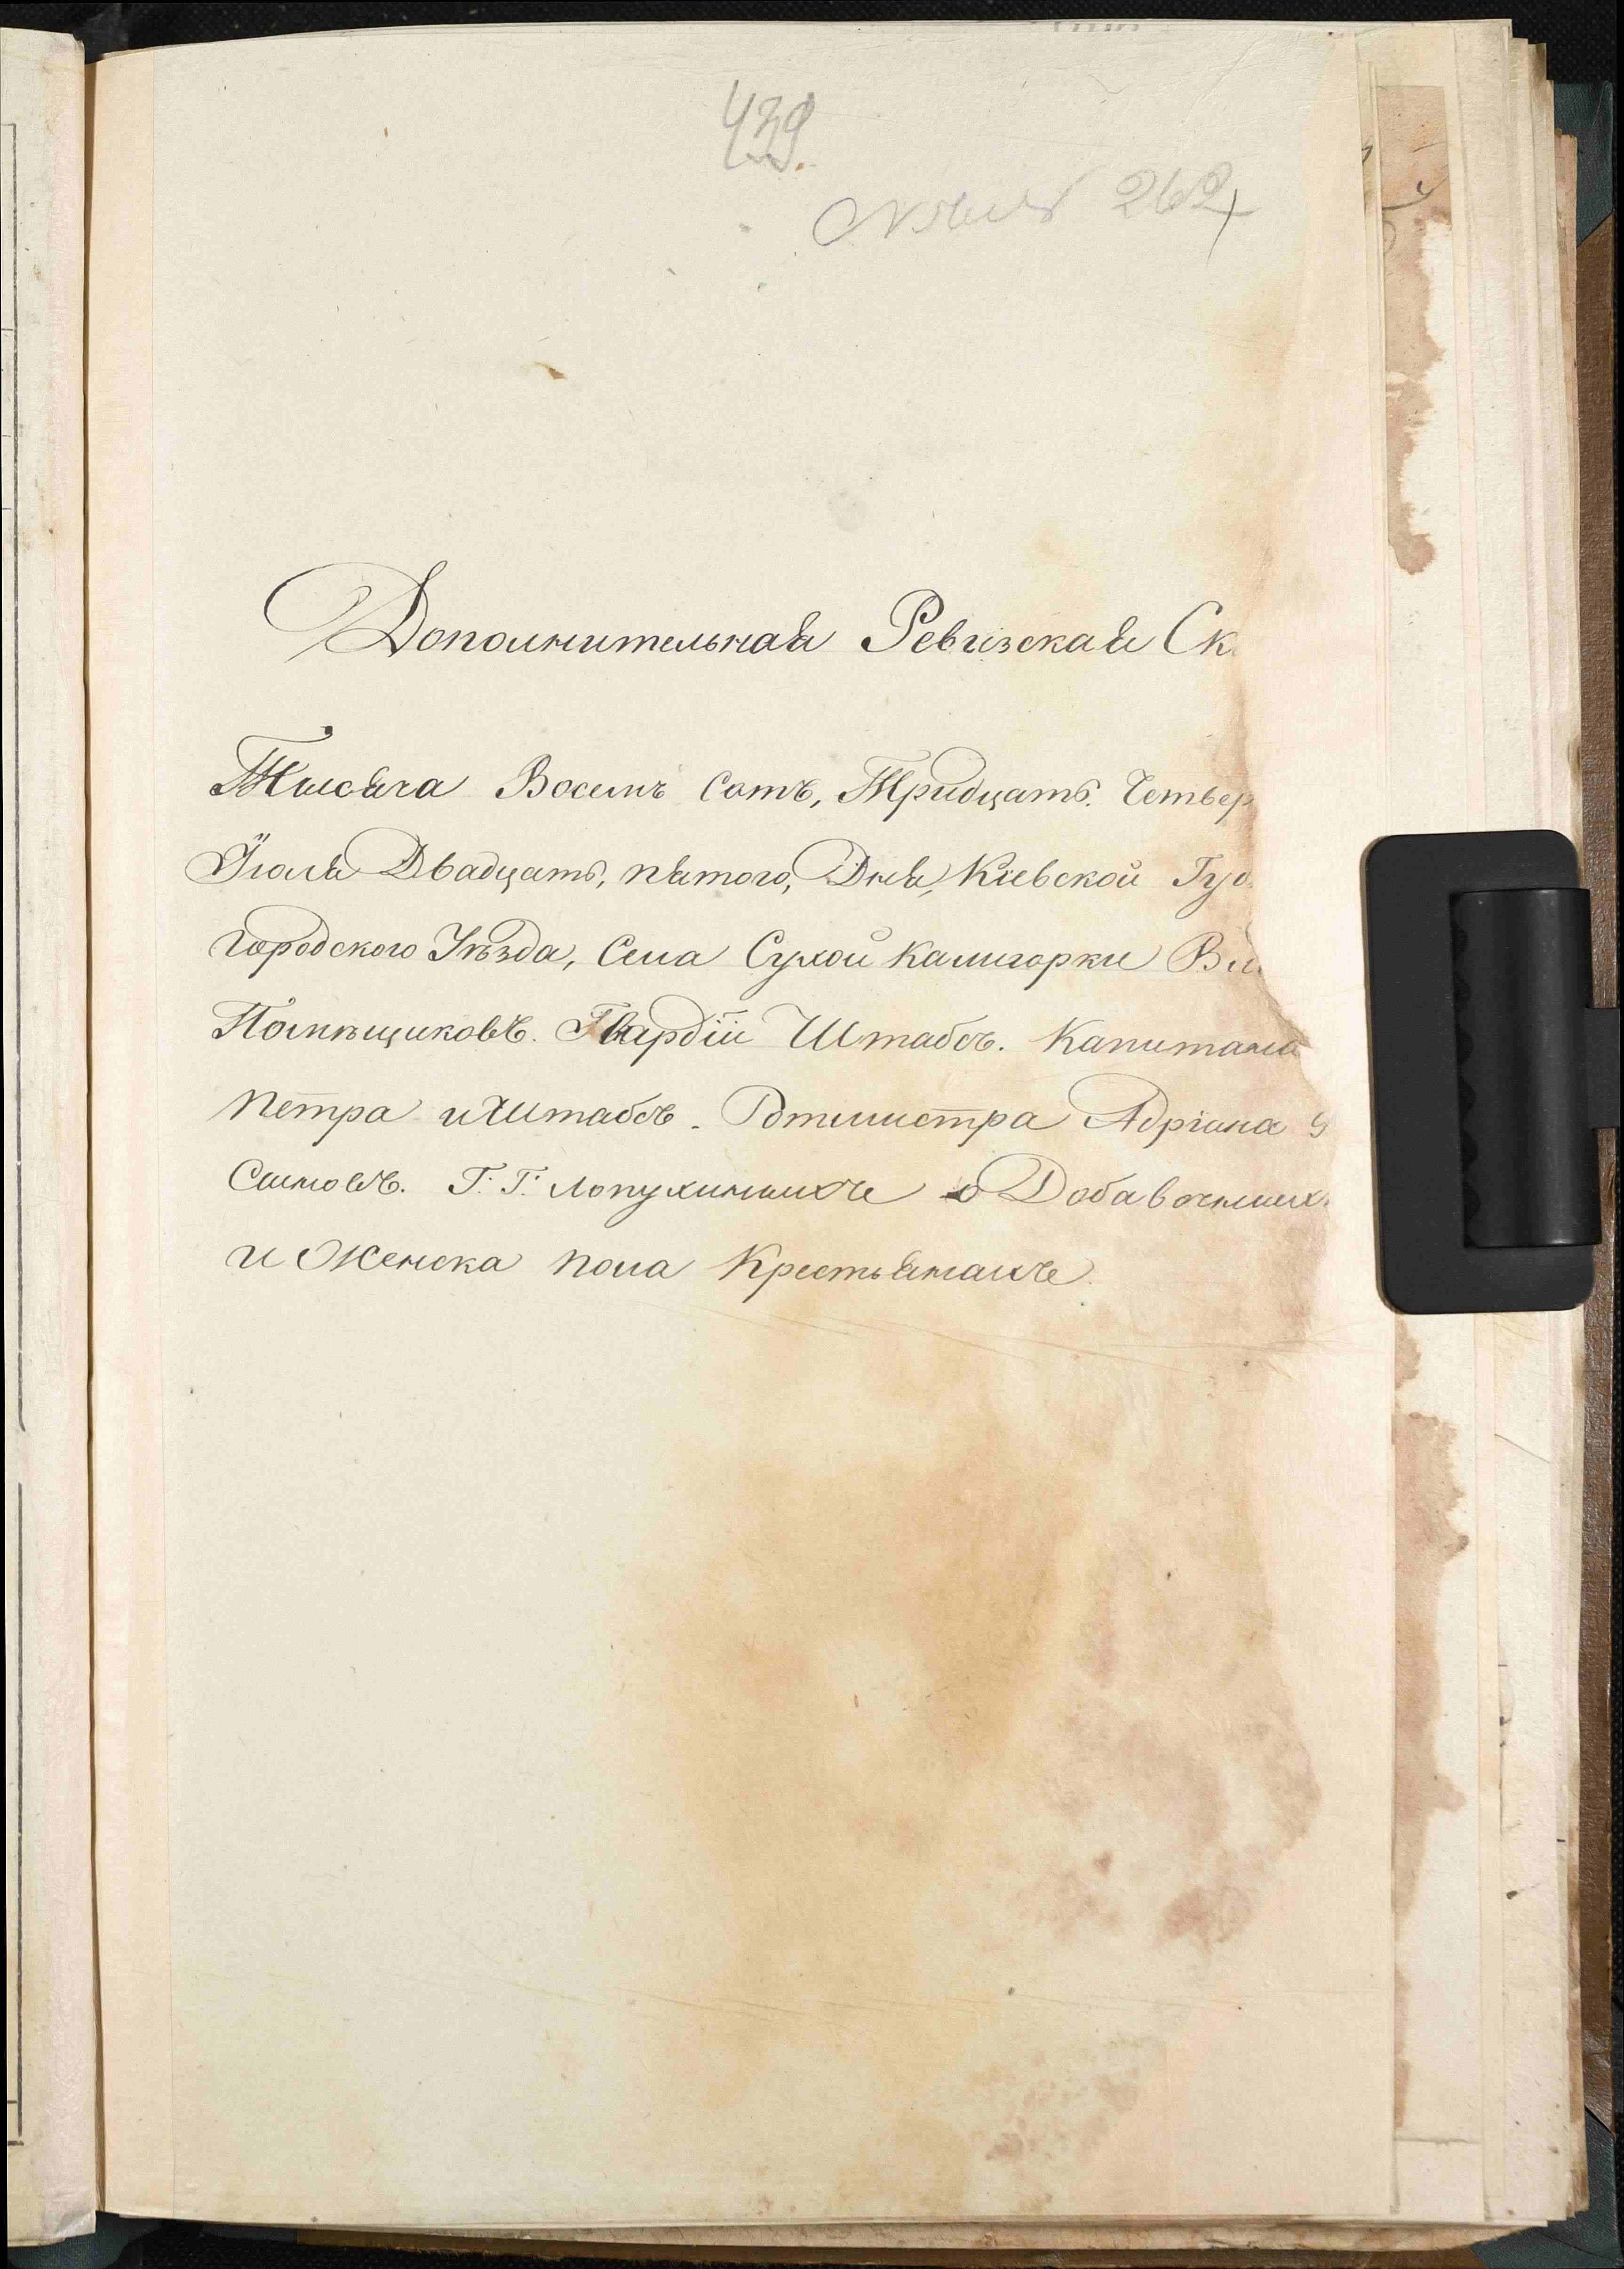 439.
262
Дополнительная Ревизская Ск
Тысяча Восемъ Сотъ, Тридцать. Четвер
Іюля Двадцать, пятого, Дня, Кіевской Губ
городского Уѣзда, Села Сухой Калигорки В
Помѣщиковъ. Гвардіи Штабсъ. Капитана
Петра и Штабсъ. Ротмистра Адріана
Сыновъ. Г: Г: Лопухиныхъ о Добавочныхъ
и Женска пола Крестьянахъ.